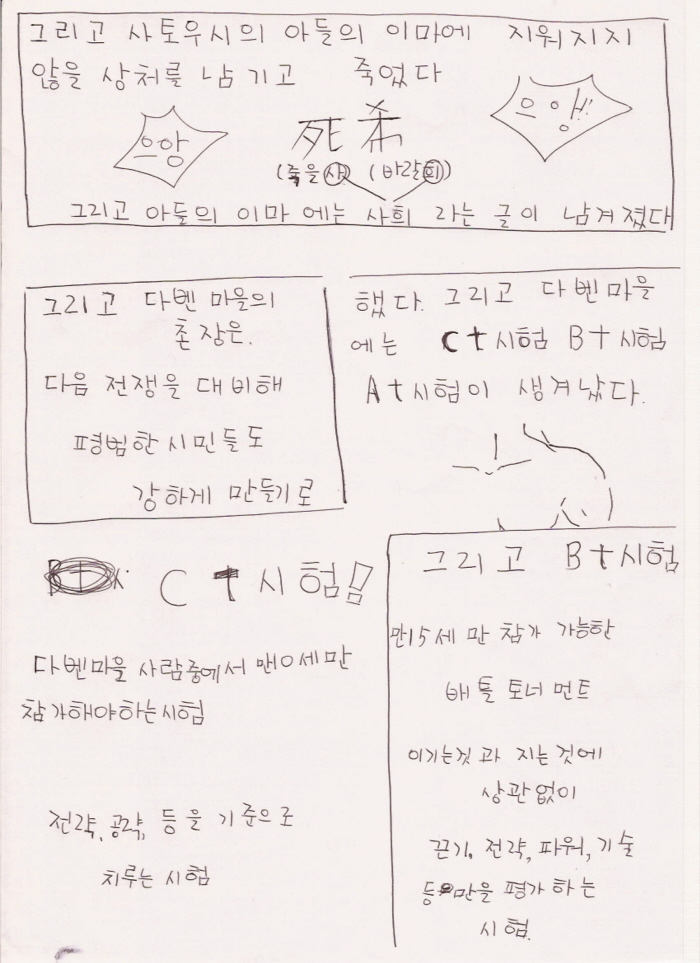 그리고 사토우시의 아들의 이마에 지워지지
않을 상처를 남기고 죽었다
으앙
死希
으앙!!
(죽을사) (바랄희)
그리고 아들의 이마 에는 사희 라는 글이 남겨졌다
그리고 다벤 마을의
촌장은.
다음 전쟁을 대비해
평범한 시민들도
강하게 만들기로
했다. 그리고 다벤마을
에는 Ct시험 Bt시험
At시험이 생겨났다.
Ct시험!!
다벤마을 사람중에서 만10세만
참가해야하는시험
전략, 공략, 등을 기준으로
치루는 시험
그리고 Bt시험
만15세만 참가 가능한
배틀 토너먼트
이기는것과 지는것에
상관없이
끈기, 전략, 파워, 기술
등만을 평가하는
시험.